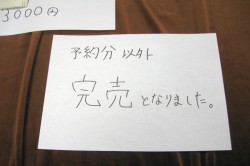 3000円
予約分以外
完売となりました。